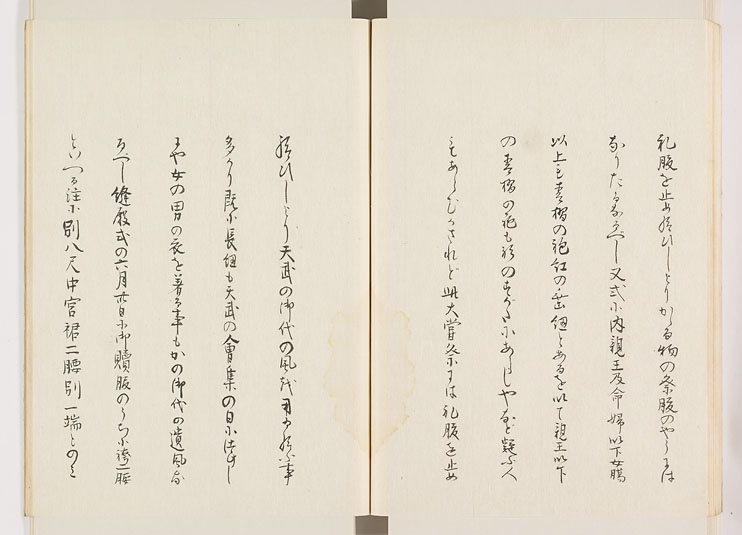 礼服を止め給ひしよりかゝる物の祭服のやうには
なりたるなるへし又式に内親王及命婦以下女腸
以上も青摺の袍紅の垂紐とあるを以て親王以下
の青摺の袍も衫のすかたにあらしやなと疑ふ人
もあらむかされと此大嘗祭には礼服を止め
給ひしより天武の御代の風を用ゐ給ふ事
多かり既に長紐も天武の會集の日に
や女の男の衣を著る事もかの御代の遺風なる
へし縫殿式の六月晦日御贖服のうちに袴二腰
といへる注に別八尺中宮裙二腰別一端とのミ